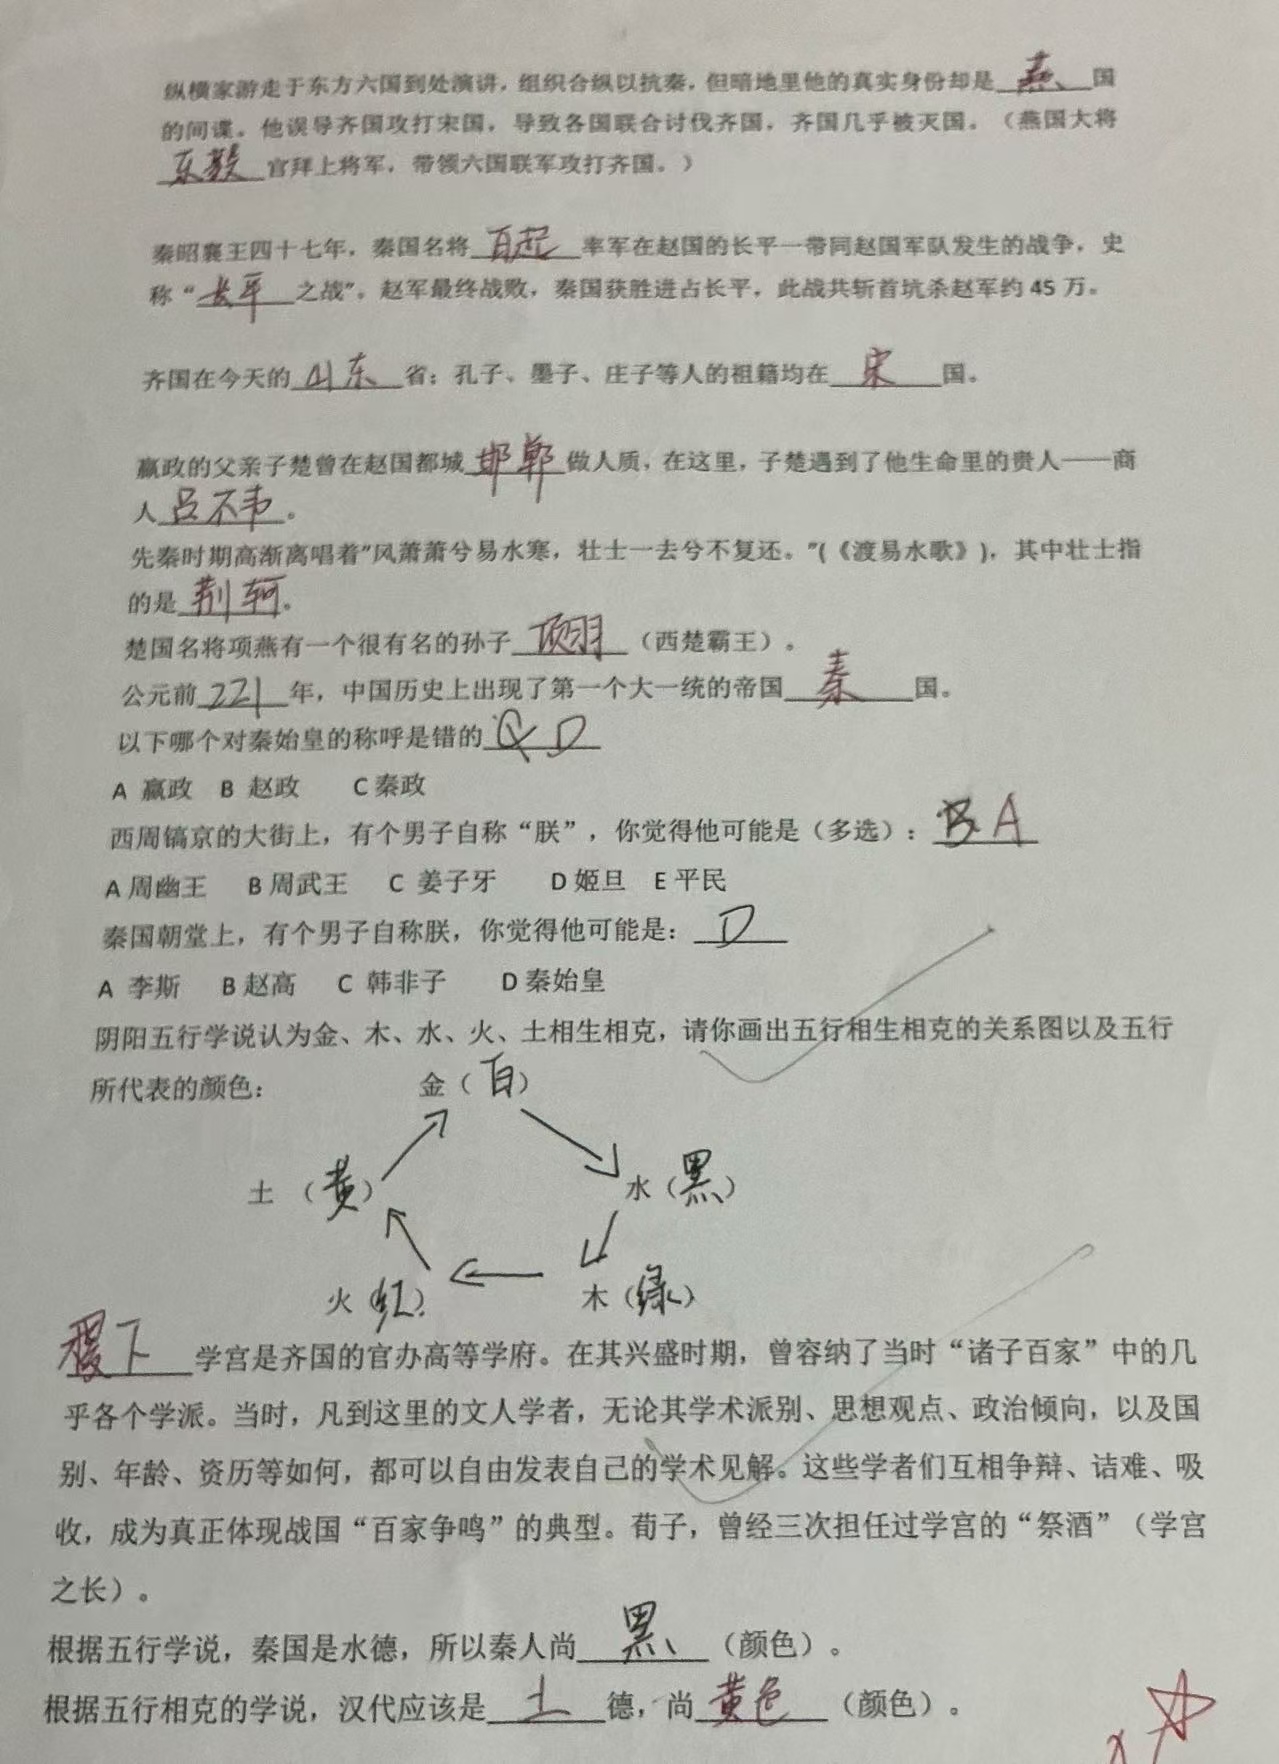 纵横家游走于东方六国到处演讲，组织合纵以抗秦，但暗地里他的真实身份却是 燕 国
的间谍。他误导齐国攻打宋国，导致各国联合讨伐齐国，齐国几乎被灭国。（燕国大将
东毅 官拜上将军，带领六国联军攻打齐国。）
秦昭襄王四十七年，秦国名将 白起 率军在赵国的长平一带同赵国军队发生的战争，史
称“ 长平 之战”。赵军最终战败，秦国获胜进占长平，此战共斩首坑杀赵军约 45 万。
齐国在今天的 山东 省；孔子、墨子、庄子等人的祖籍均在 宋 国。
嬴政的父亲子楚曾在赵国都城 邯郸 做人质，在这里，子楚遇到了他生命里的贵人——商
人 吕不韦 。
先秦时期高渐离唱着”风萧萧兮易水寒，壮士一去兮不复还。”(《渡易水歌》)，其中壮士指
的是 荆轲 。
楚国名将项燕有一个很有名的孙子 项羽 （西楚霸王）。
公元前 221 年，中国历史上出现了第一个大一统的帝国 秦 国。
以下哪个对秦始皇的称呼是错的 D
A 嬴政 B 赵政 C 秦政
西周镐京的大街上，有个男子自称“朕”，你觉得他可能是（多选）： B A
A 周幽王 B 周武王 C 姜子牙 D 姬旦 E 平民
秦国朝堂上，有个男子自称朕，你觉得他可能是： D
A 李斯 B 赵高 C 韩非子 D 秦始皇
阴阳五行学说认为金、木、水、火、土相生相克，请你画出五行相生相克的关系图以及五行
所代表的颜色： 金（白）
土 （黄） 水（黑）
火（红） 木（绿）
稷下 学宫是齐国的官办高等学府。在其兴盛时期，曾容纳了当时“诸子百家”中的几
乎各个学派。当时，凡到这里的文人学者，无论其学术派别、思想观点、政治倾向，以及国
别、年龄、资历等如何，都可以自由发表自己的学术见解。这些学者们互相争辩、诘难、吸
收，成为真正体现战国“百家争鸣”的典型。荀子，曾经三次担任过学宫的“祭酒”（学宫
之长）。
根据五行学说，秦国是水德，所以秦人尚 黑 （颜色）。
根据五行相克的学说，汉代应该是 土 德，尚 黄色 （颜色）。